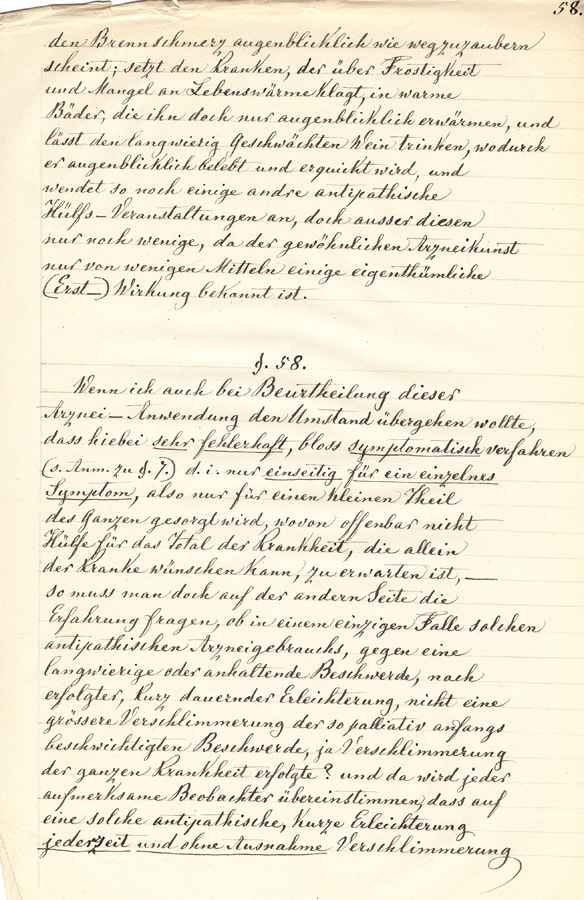 58.
den Brennschmerz augenblicklich wie wegzuzaubern
scheint; setzt den Kranken, der über Frostigkeit
und Mangel an Lebenswärme klagt, in warme
Bäder, die ihn doch nur augenblicklich erwärmen, und
lässt den langwierig Geschwächten Wein trinken, wodurch
er augenblicklich belebt und erquickt wird, und
wendet so noch einige andre antipathische
Hülfs-Veranstaltungen an, doch ausser diesen
nur noch wenige, da der gewöhnlichen Arzneikunst
nur von wenigen Mitteln einige eigenthümliche
(Erst-) Wirkung bekannt ist.
§. 58.
Wenn ich auch bei Beurtheilung dieser
Arznei-Anwendung den Umstand übergehen wollte,
dass hiebei sehr fehlerhaft, bloss symptomatisch verfahren
(s. Anm. zu §. 7.) d. i. nur einseitig für ein einzelnes
Symptom, also nur für einen kleinen Theil
des Ganzen gesorgt wird, wovon offenbar nicht
Hülfe für das Total der Krankheit, die allein
der Kranke wünschen kann, zu erwarten ist, —
so muss man doch auf der andern Seite die
Erfahrung fragen, ob in einem einzigen Falle solchen
antipathischen Arzneigebrauchs, gegen eine
langwierige oder anhaltende Beschwerde, nach
erfolgter, kurz dauernder Erleichterung, nicht eine
grössere Verschlimmerung der so palliativ anfangs
beschwichtigten Beschwerde, ja Verschlimmerung
der ganzen Krankheit erfolgte? und da wird jeder
aufmerksame Beobachter übereinstimmen, dass auf
eine solche antipathische, kurze Erleichterung
jederzeit und ohne Ausnahme Verschlimmerung